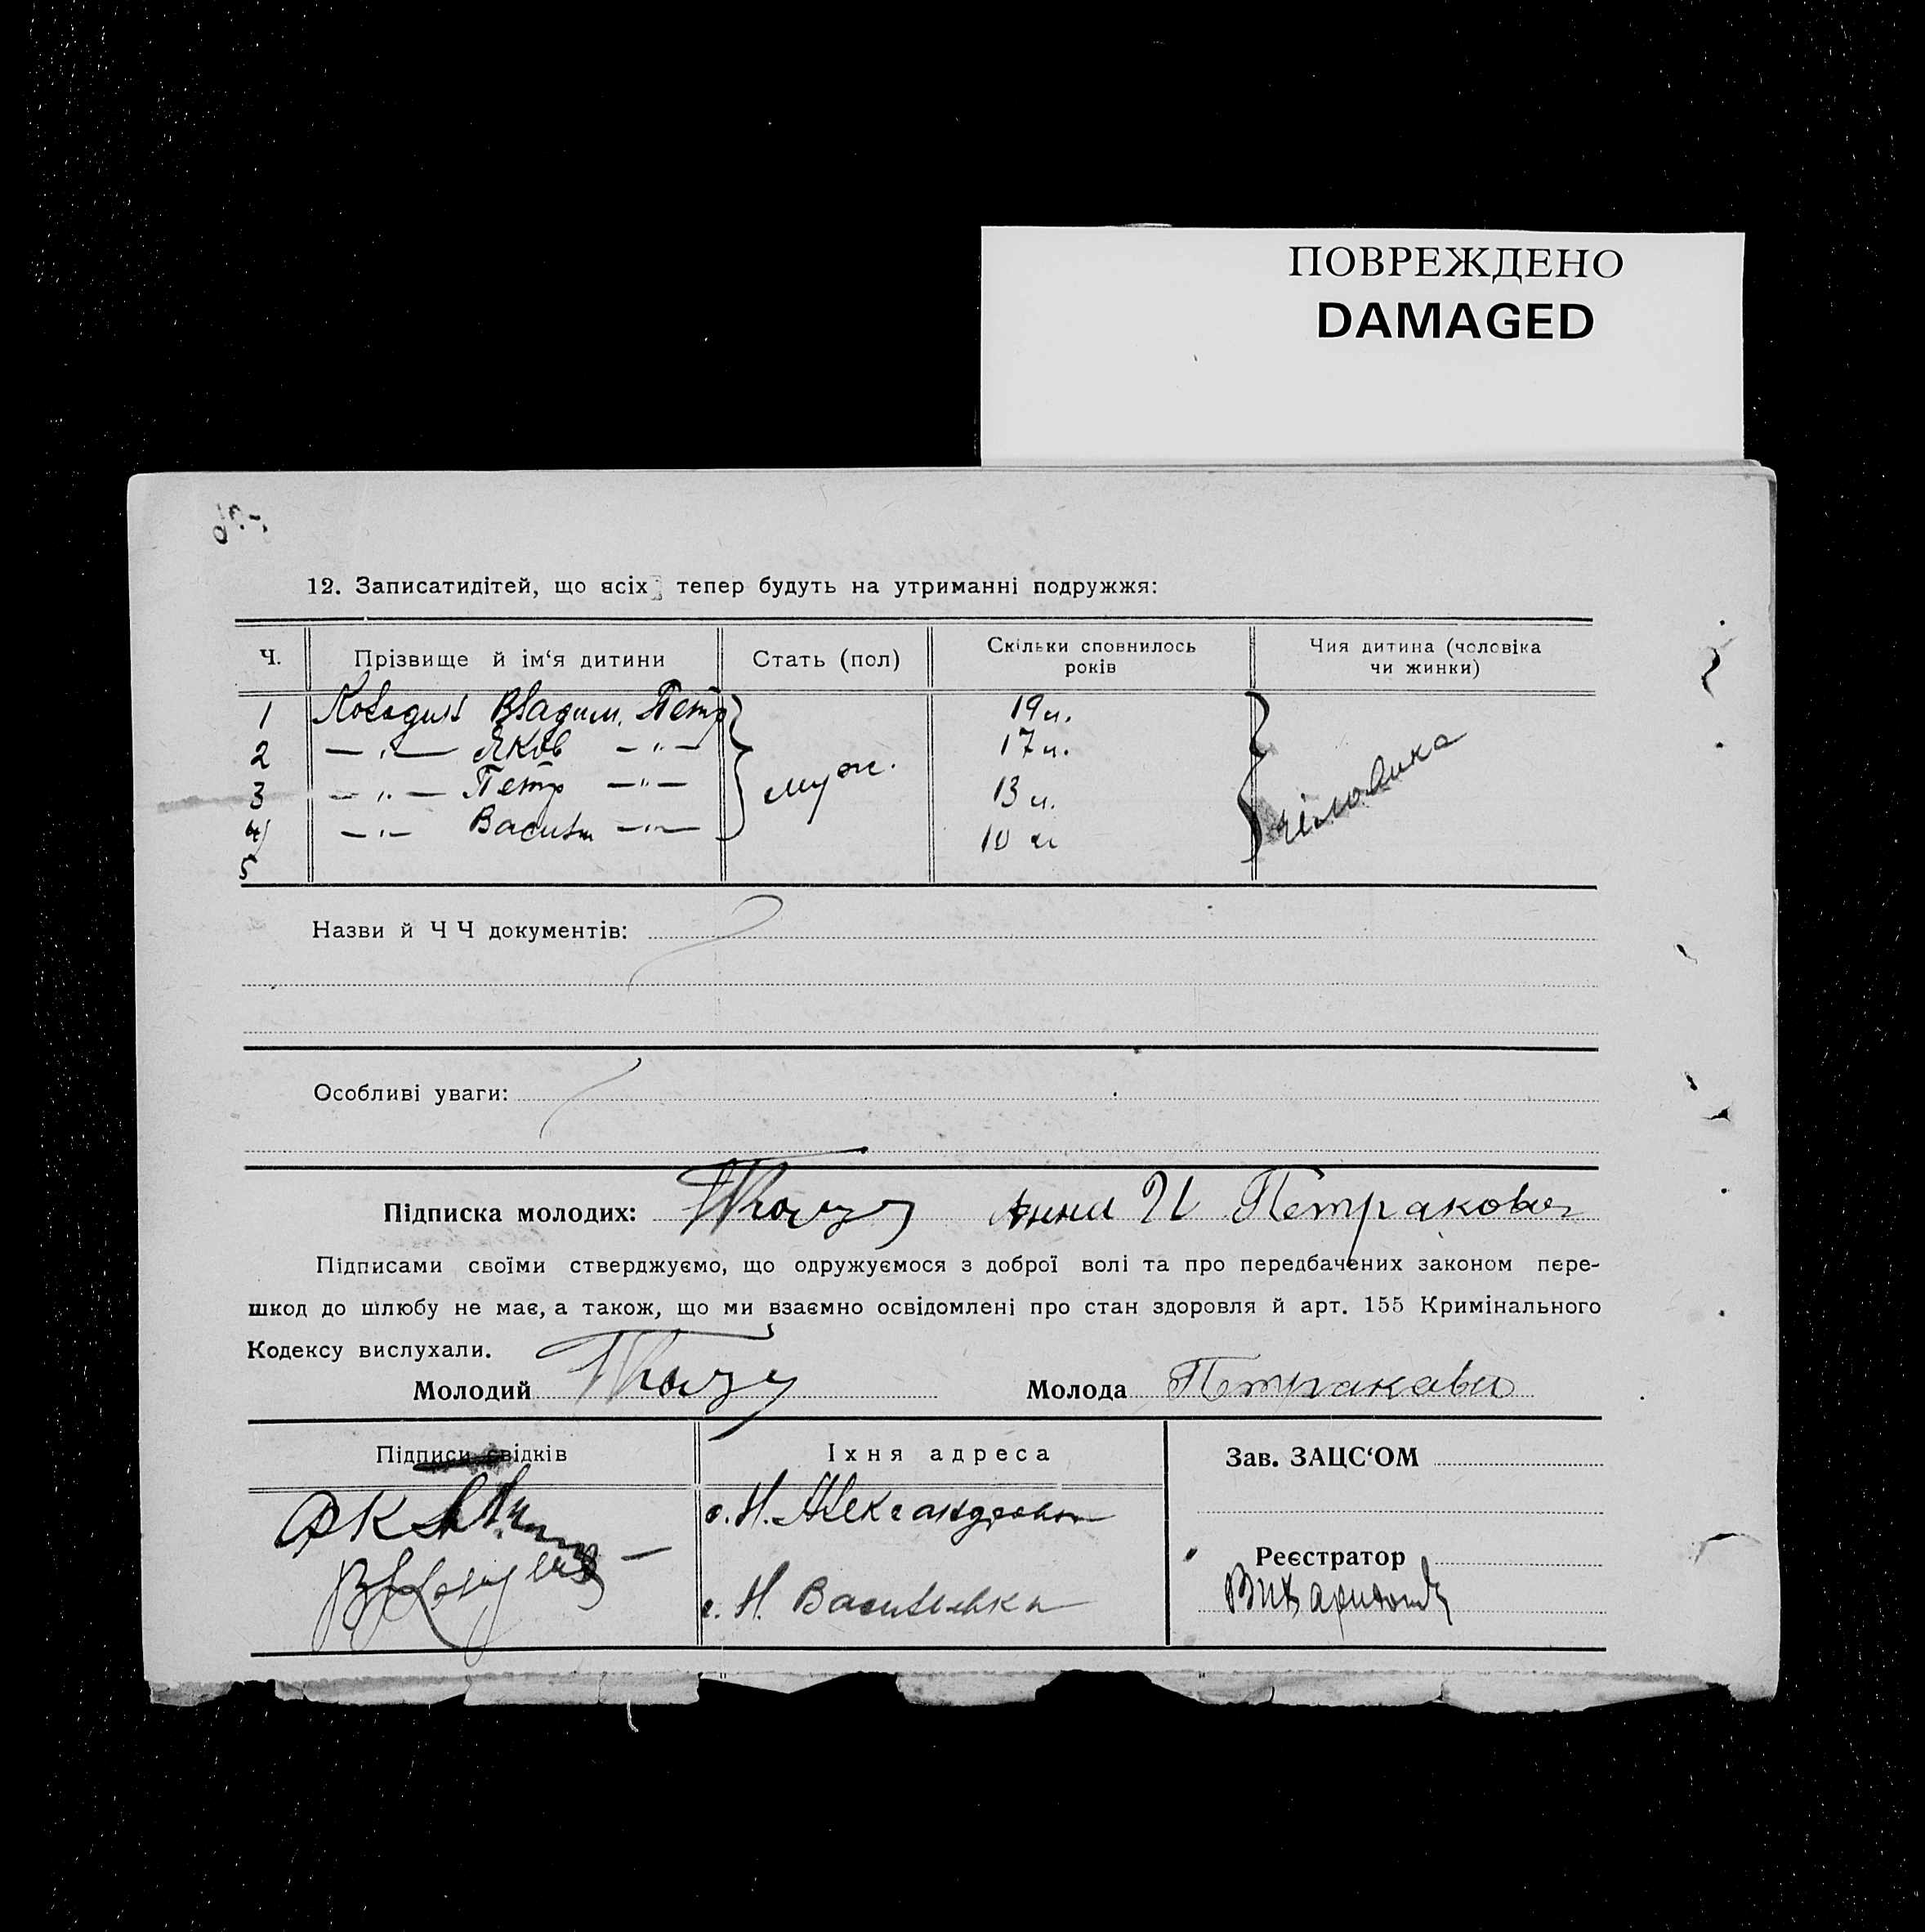 ПОВРЕЖДЕНО
DAMAGED
12. Записатидітей, що всіх тепер будуть на утриманні подружжя:
Ч. Прізвище й ім‘я дитини Стать (пол) Скільки сповнилось років Чия дитина (чоловіка чи жинки)
1 Владим. Петр 19 л.
2 — „ — Яков — „ — 17 л.
3 — „ — Петр — „ — муж. 13 л. чоловика
4) — „ — Васили — „ — 10 л
5
Назви й Ч Ч документів:
Особливі уваги:
Підписка молодих: Анна И Петракова
Підписами своїми стверджуємо, що одружуємося з доброї волі та про передбачених законом пере-
шкод до шлюбу не має, а також, що ми взаємно освідомлені про стан здоровля й арт. 155 Кримінального
Кодексу вислухали.
Молодий Молода Петракава
Підписи свідків Їхня адреса Зав. ЗАЦС‘ОМ
с. Н. Александровка
Реєстратор
с. Н. Васильевка